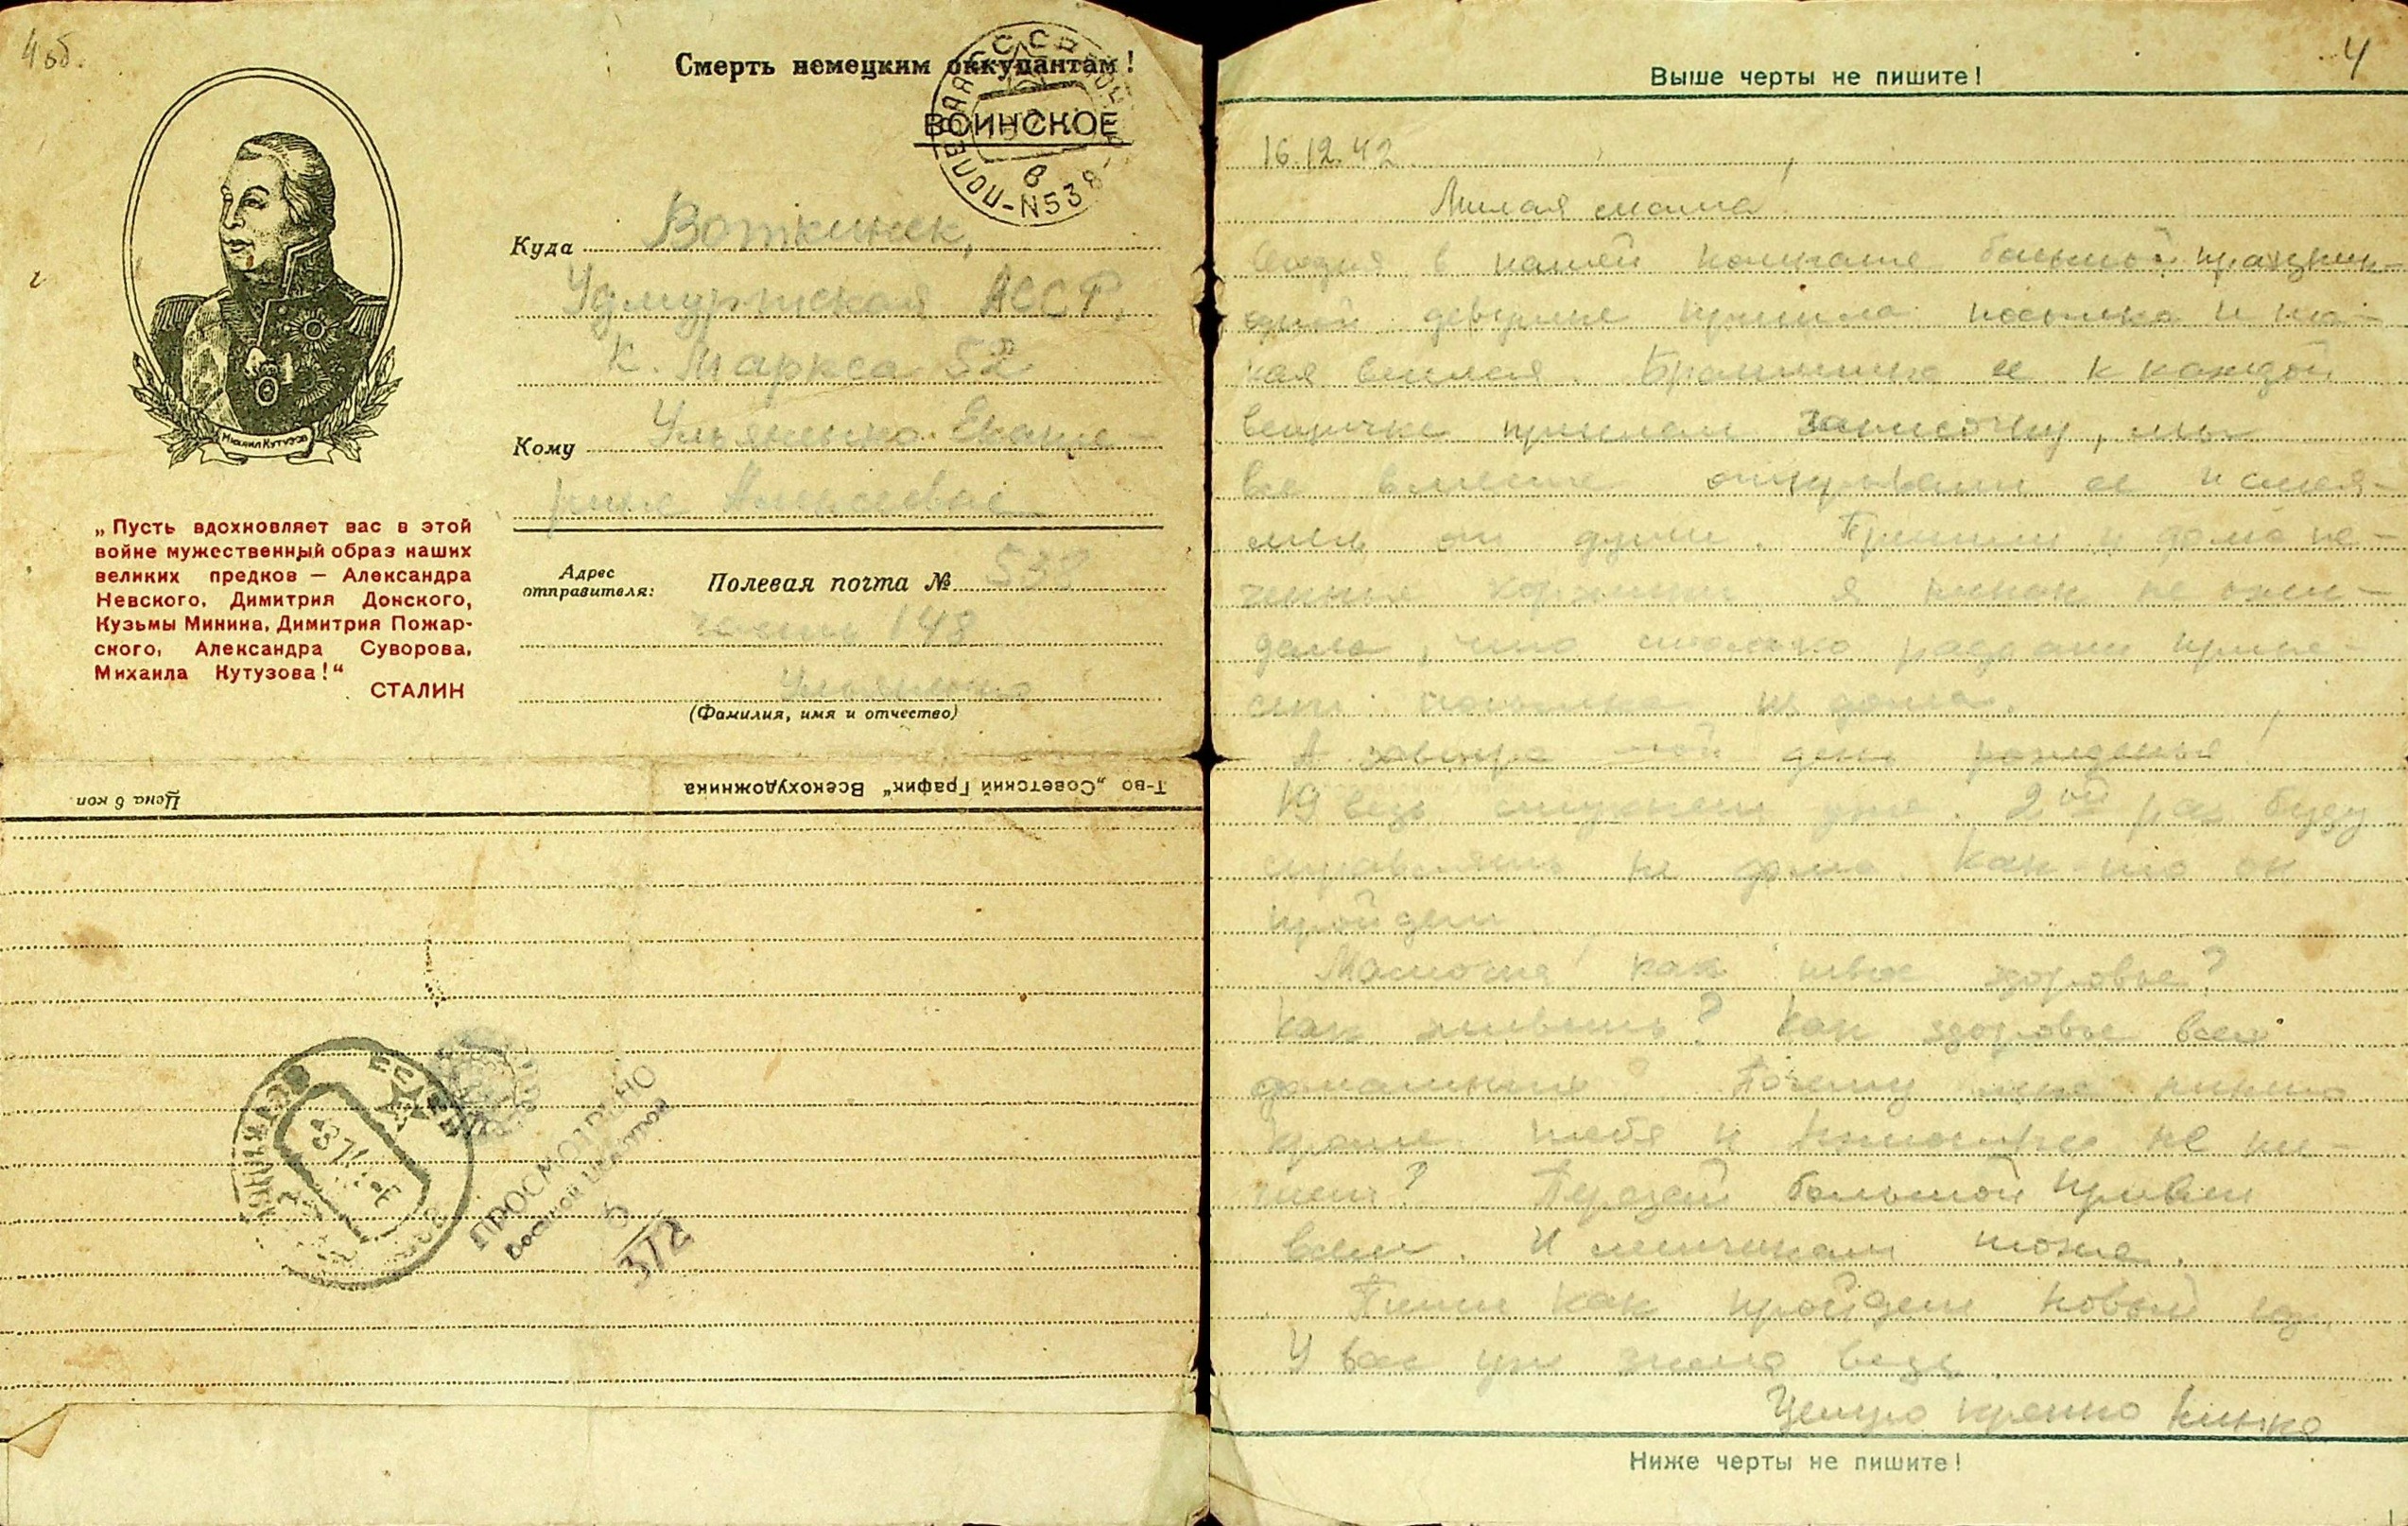 4 об.
Смерть немецким оккупантам!
ВОИНСКОЕ
Михаил Кутузов
„Пусть вдохновляет вас в этой
войне мужественный образ наших
великих предков — Александра
Невского, Димитрия Донского,
Кузьмы Минина, Димитрия Пожар-
ского, Александра Суворова,
Михаила Кутузова!“
СТАЛИН
Куда Воткинск,
Удмуртская АССР,
К. Маркса 52
Кому Ульяненко Екате-
рине Алексеевне
Адрес
отправителя:
Полевая почта № 538
часть 148
Ульяненко
(Фамилия, имя и отчество)
Т-во „Советский График“ Всекохудожника
Цена 6 коп
ПРОСМОТРЕНО
Военной Цензурой
372
4
Выше черты не пишите!
16.12.42.
Милая мама!
Сегодня в нашей комнате большой праздник-
одной девушке пришла посылка и та-
кая милая. Братишка ее к каждой
вещичке прислал записочку, мы
все вместе открывали ее и смея-
лись от души. Пришли и дома пе-
ченые коржики я никак не ожи-
дала, что столько радости прине-
сет посылка из дома.
А завтра мой день рожденья!
19 ведь стукнет уже. 2ой раз буду
справлять не дома. Как-то он
пройдет
Мамочка! как твое здоровье?
Как живешь? Как здоровье всех
домашних? Почему мне никто
кроме тебя и не пи-
шет? Передай большой привет
всем. И тоже.
Пиши как пройдет новый год.
У вас уже зима ведь
Целую крепко Кинка
Ниже черты не пишите!